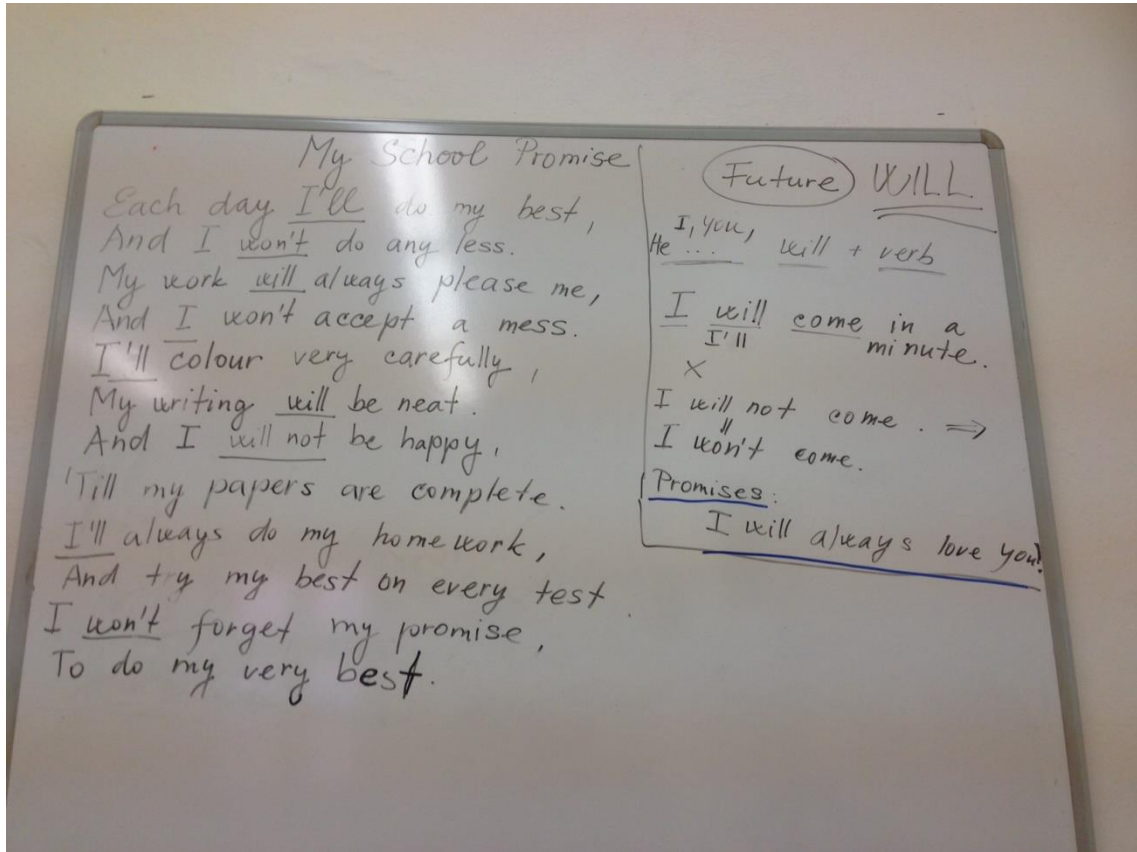 My School Promise
Each day I'll do my best,
And I won't do any less.
My work will always please me,
And I won't accept a mess.
I'll colour very carefully,
My writing will be neat.
And I will not be happy,
'Till my papers are complete.
I'll always do my homework,
And try my best on every test.
I won't forget my promise,
To do my very best.
Future WILL
I, you,
He .... will + verb
I will come in a
I'll minute.
X
I will not come. ⇒
"
I won't come.
Promises:
I will always love you!